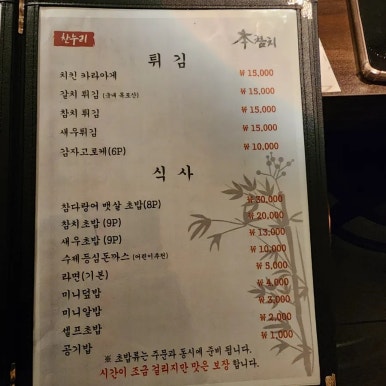 한누리
本참치
튀김
치킨 카라아게 ₩ 15,000
갈치 튀김 (국내 목포산) ₩ 15,000
참치 튀김 ₩ 15,000
새우튀김 ₩ 15,000
감자고로케(6P) ₩ 10,000
식사
참다랑어 뱃살 초밥(8P) ₩ 30,000
참치초밥 (9P) ₩ 20,000
새우초밥 (9P) ₩ 13,000
수제등심돈까스 (어린이추천) ₩ 10,000
라면(기본) ₩ 5,000
미니덮밥 ₩ 4,000
미니알밥 ₩ 3,000
셀프초밥 ₩ 2,000
공기밥 ₩ 1,000
※ 초밥류는 주문과 동시에 준비 됩니다.
시간이 조금 걸리지만 맛은 보장 합니다.